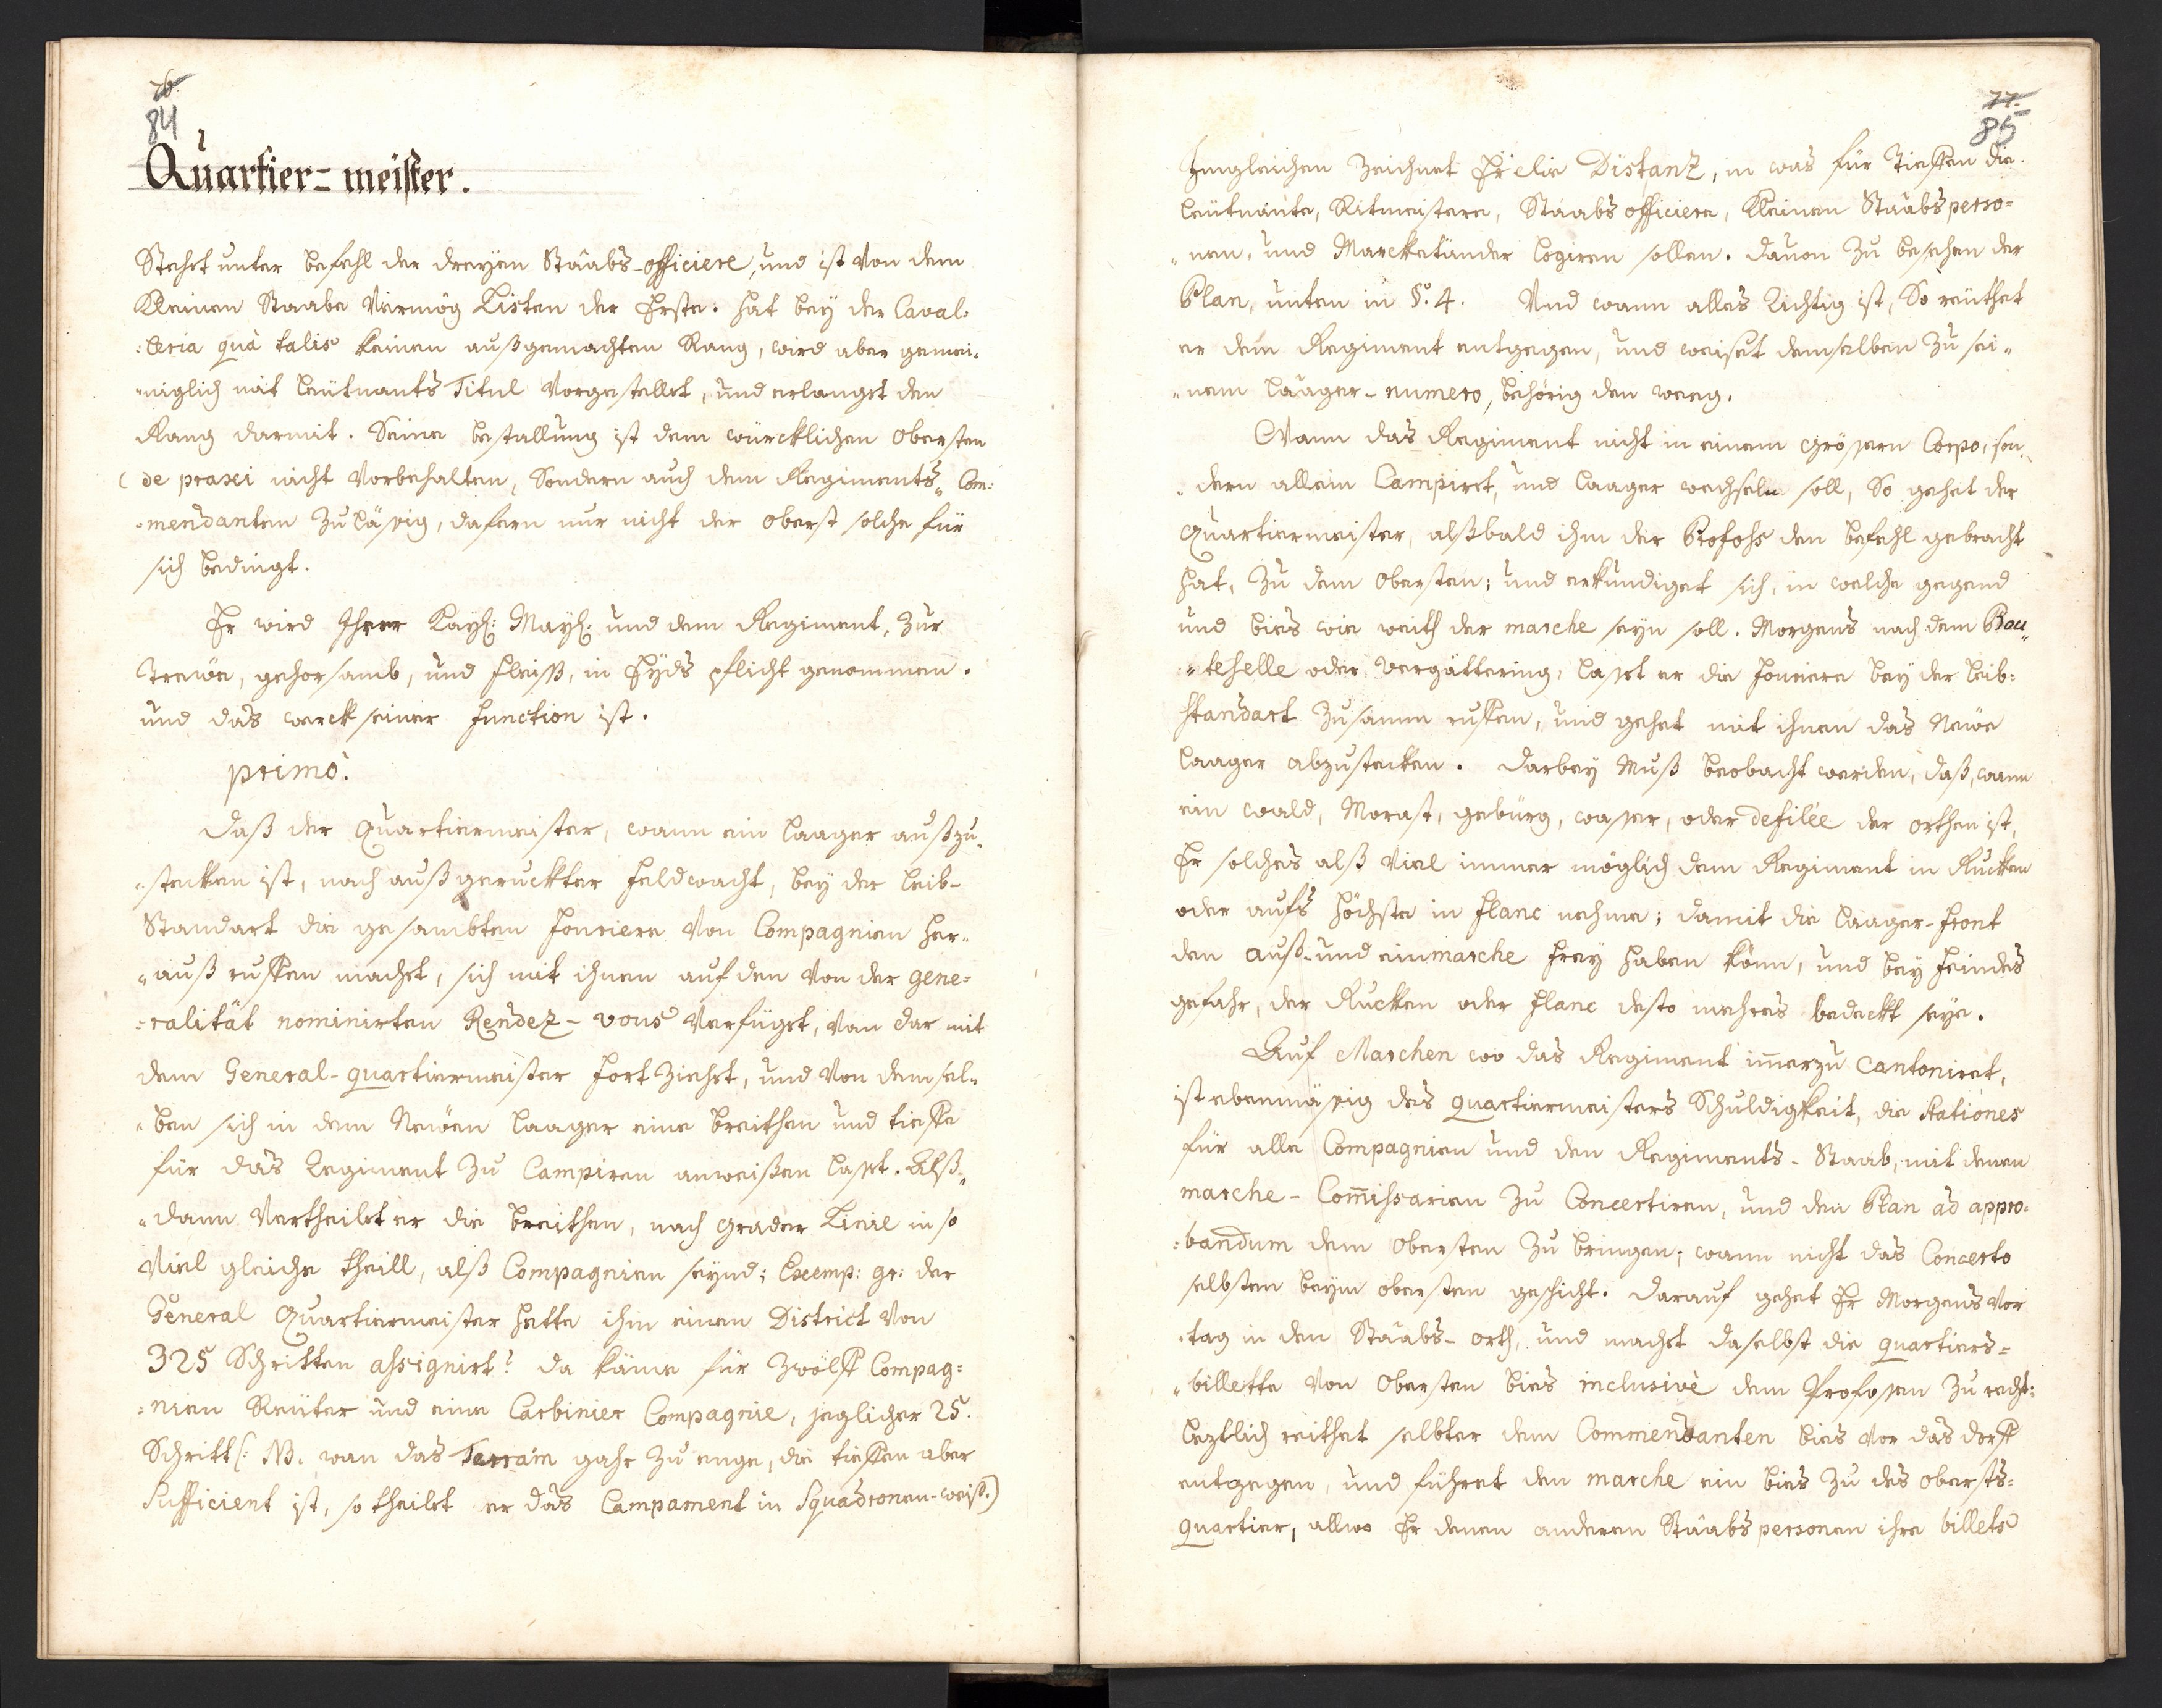 76.
84
Quartier=meister.
Stehet unter befehl der dreyen Staabs-officiere, und ist von dem
Kleinen Staabe Vermög Listen der Erste: hat bey der Caval=
=leria quà talis keinen außgemachten Rang, wird aber gemei=
=niglich mit leütnants Titul vorgestellet, und erlanget den
Rang darmit. Seine bestallung ist dem würcklichen obersten
de praxi nicht vorbehalten, Sondern auch dem Regiments- Com=
=mendanten zuläßig, dafern nur nicht der oberst solche für
sich bedingt.
Er wird Ihrer Kayß: Mayß: und dem Regiment, zur
Treüe, gehorsamb, und fleiß, in Eyds pflicht genommen.
und das werck seiner Function ist.
primò.
Daß der Quartiermeister, wann ein laager außzu=
=stecken ist, nach außgeruckter feldwacht, bey der leib-
Standart die gesambten Fouriere von Compagnien her=
=auß ruffen machet, sich mit ihnen auf den von der gene=
=ralität nominirten Rendez-vous verfüget, von dar mit
dem General-quartiermeister fort ziehet, und von demsel=
=ben sich in dem Neüen laager eine breithen und tieffe
für das Regiment zu Campiren anweißen lasset. Alß=
=dann Vertheilet er die breithen, nach grader Linie in so
viel gleiche theill, alß Compagnien seynd; Exemp: gr: der
General Quartiermeister hette ihm einen District von
325 Schritten assignirt? da käme für zwölff Compag=
=nien Reüter und eine Carbinier Compagnie, jeglicher 25.
Schritt (: NB. wan das Terrain gahr zu enge, die tieffen aber
Sufficient ist, so theilet er das Campament in Squadronen-weiß.)
77.
85
Imgleichen zeichnet Er die Distanz, in was für Tieffen die
leütnante, Ritmeistere, Staabs officiere, Kleinen Staabs perso=
=nen, und Marcketänder logiren sollen. davon zu besehen der
Plan, unten in §º. 4. Und wann alles Richtig ist, So reüthet
er dem Regiment entgegen, und weiset demselben zu sei=
=nem laager-numero, behörig den weeg.
Wann das Regiment nicht in einem grössern Corpo, son=
=dern allein Campiret, und laager wechseln soll, So gehet der
Quartiermeister, alßbald ihm der Profohs den befehl gebracht
hat, zu dem Obersten; und erkundiget sich, in welche gegend
und bies wie weith der marche seyn soll. Morgens nach dem Bou=
=teselle oder Vergätterung, lasset er die fouriere bey der leib=
standart zusamm ruffen, und gehet mit ihnen das Neüe
laager abzustecken. Darbey Muß beobacht werden, daß, wann
ein wald, Morast, gebürg, wasser, oder defilée der orthen ist,
Er solches alß viel immer möglich dem Regiment in Rucken
oder aufs höchste in flanc nehme; damit die laager-front
den auß-und einmarche frey haben könn, und bey feindes
gefahr, der Rucken oder flanc desto mehrers bedeckt seye.
Auf Marchen wo das Regiment imerzu cantoniret,
ist ebenmäßig des quartiermeisters Schuldigkeit, die Stationes
für alle Compagnien und den Regiments-Staab, mit denen
marche-Com̅issarien zu Concertiren, und den Plan ad appro=
=bandum dem Obersten zu bringen; wann nicht das Concerto
selbsten beym obersten geschicht. Darauf gehet Er Morgens vor
tag in den Staabs-orth, und machet daselbst die quartiers=
=billette von Obersten bies inclusivè dem Profossen zu recht:
leztlich reithet selbter dem Commendanten bies vor das dorff
entgegen, und führet den marche ein bies zu des obersts=
quartier, allwo Er denen anderen Staabs personen ihre billets